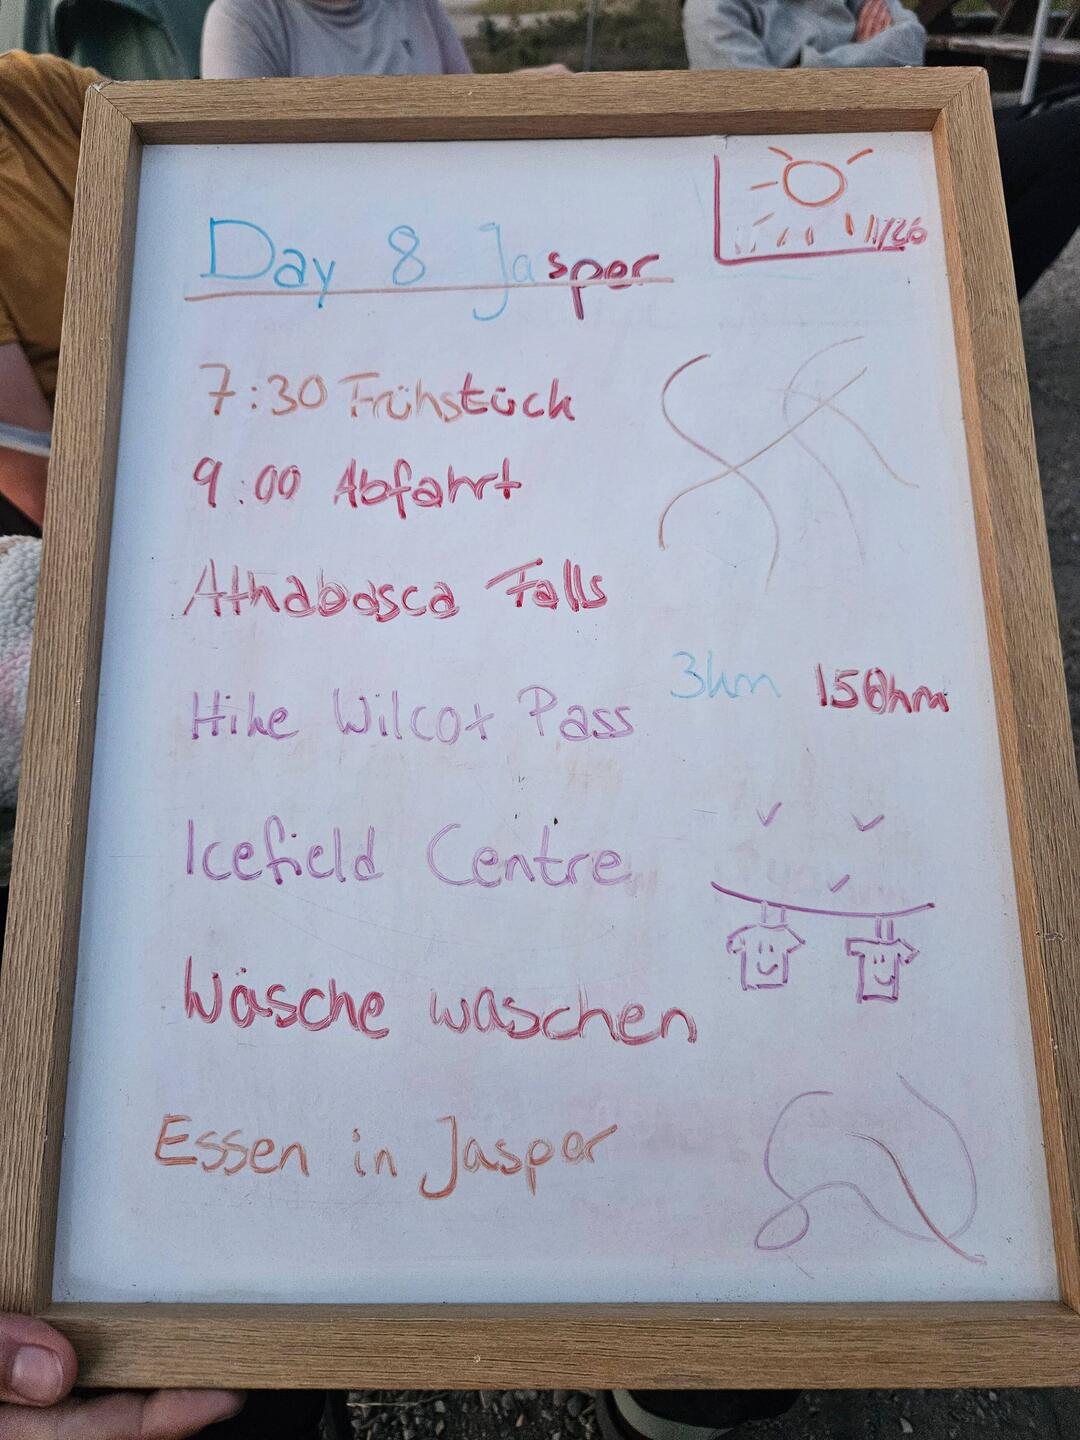 Day 8 Jasper
11/26
7:30 Frühstück
9:00 Abfahrt
Athabasca Falls
Hike Wilcox Pass 3km 150hm
Icefield Centre
Wäsche waschen
Essen in Jasper